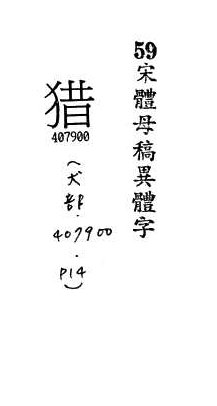 59宋體母稿異體字
猎
407900
(犬部.407900.P14)